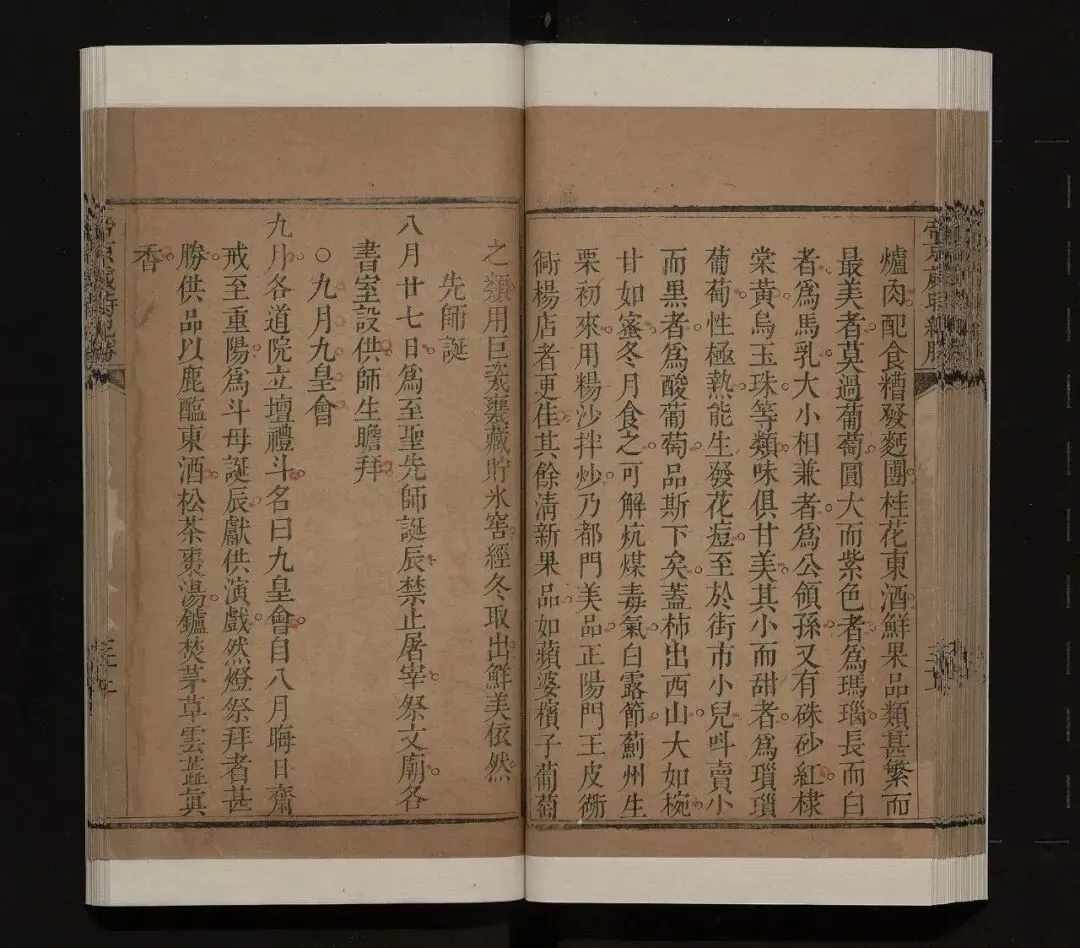 帝京歲時紀勝
爐肉配食糟發麪團桂花東酒鮮果品類甚繁而
最美者莫過葡萄圓大而紫色者爲瑪瑙長而白
者爲馬乳大小相兼者爲公領孫又有硃砂紅棣
棠黃烏玉珠等類味俱甘美其小而甜者爲瑣瑣
葡萄性極熱能生發花痘至於街市小兒呌賣小
而黑者爲酸葡萄品斯下矣蓋柿出西山大如椀
甘如蜜冬月食之可解炕煤毒氣白露節薊州生
栗初來用餳沙拌炒乃都門美品正陽門王皮衚
衕楊店者更佳其餘清新果品如蘋婆檳子葡萄
之類用巨瓷甕藏貯氷窖經冬取出鮮美依然
先師誕
八月廿七日爲至聖先師誕辰禁止屠宰祭文廟各
書室設供師生瞻拜
○九月九皇會
九月各道院立壇禮斗名曰九皇會自八月晦日齋
戒至重陽爲斗母誕辰獻供演戲然燈祭拜者甚
勝供品以鹿醢東酒松茶棗湯鑪焚茅草雲蓋眞
香
帝京歲時紀勝